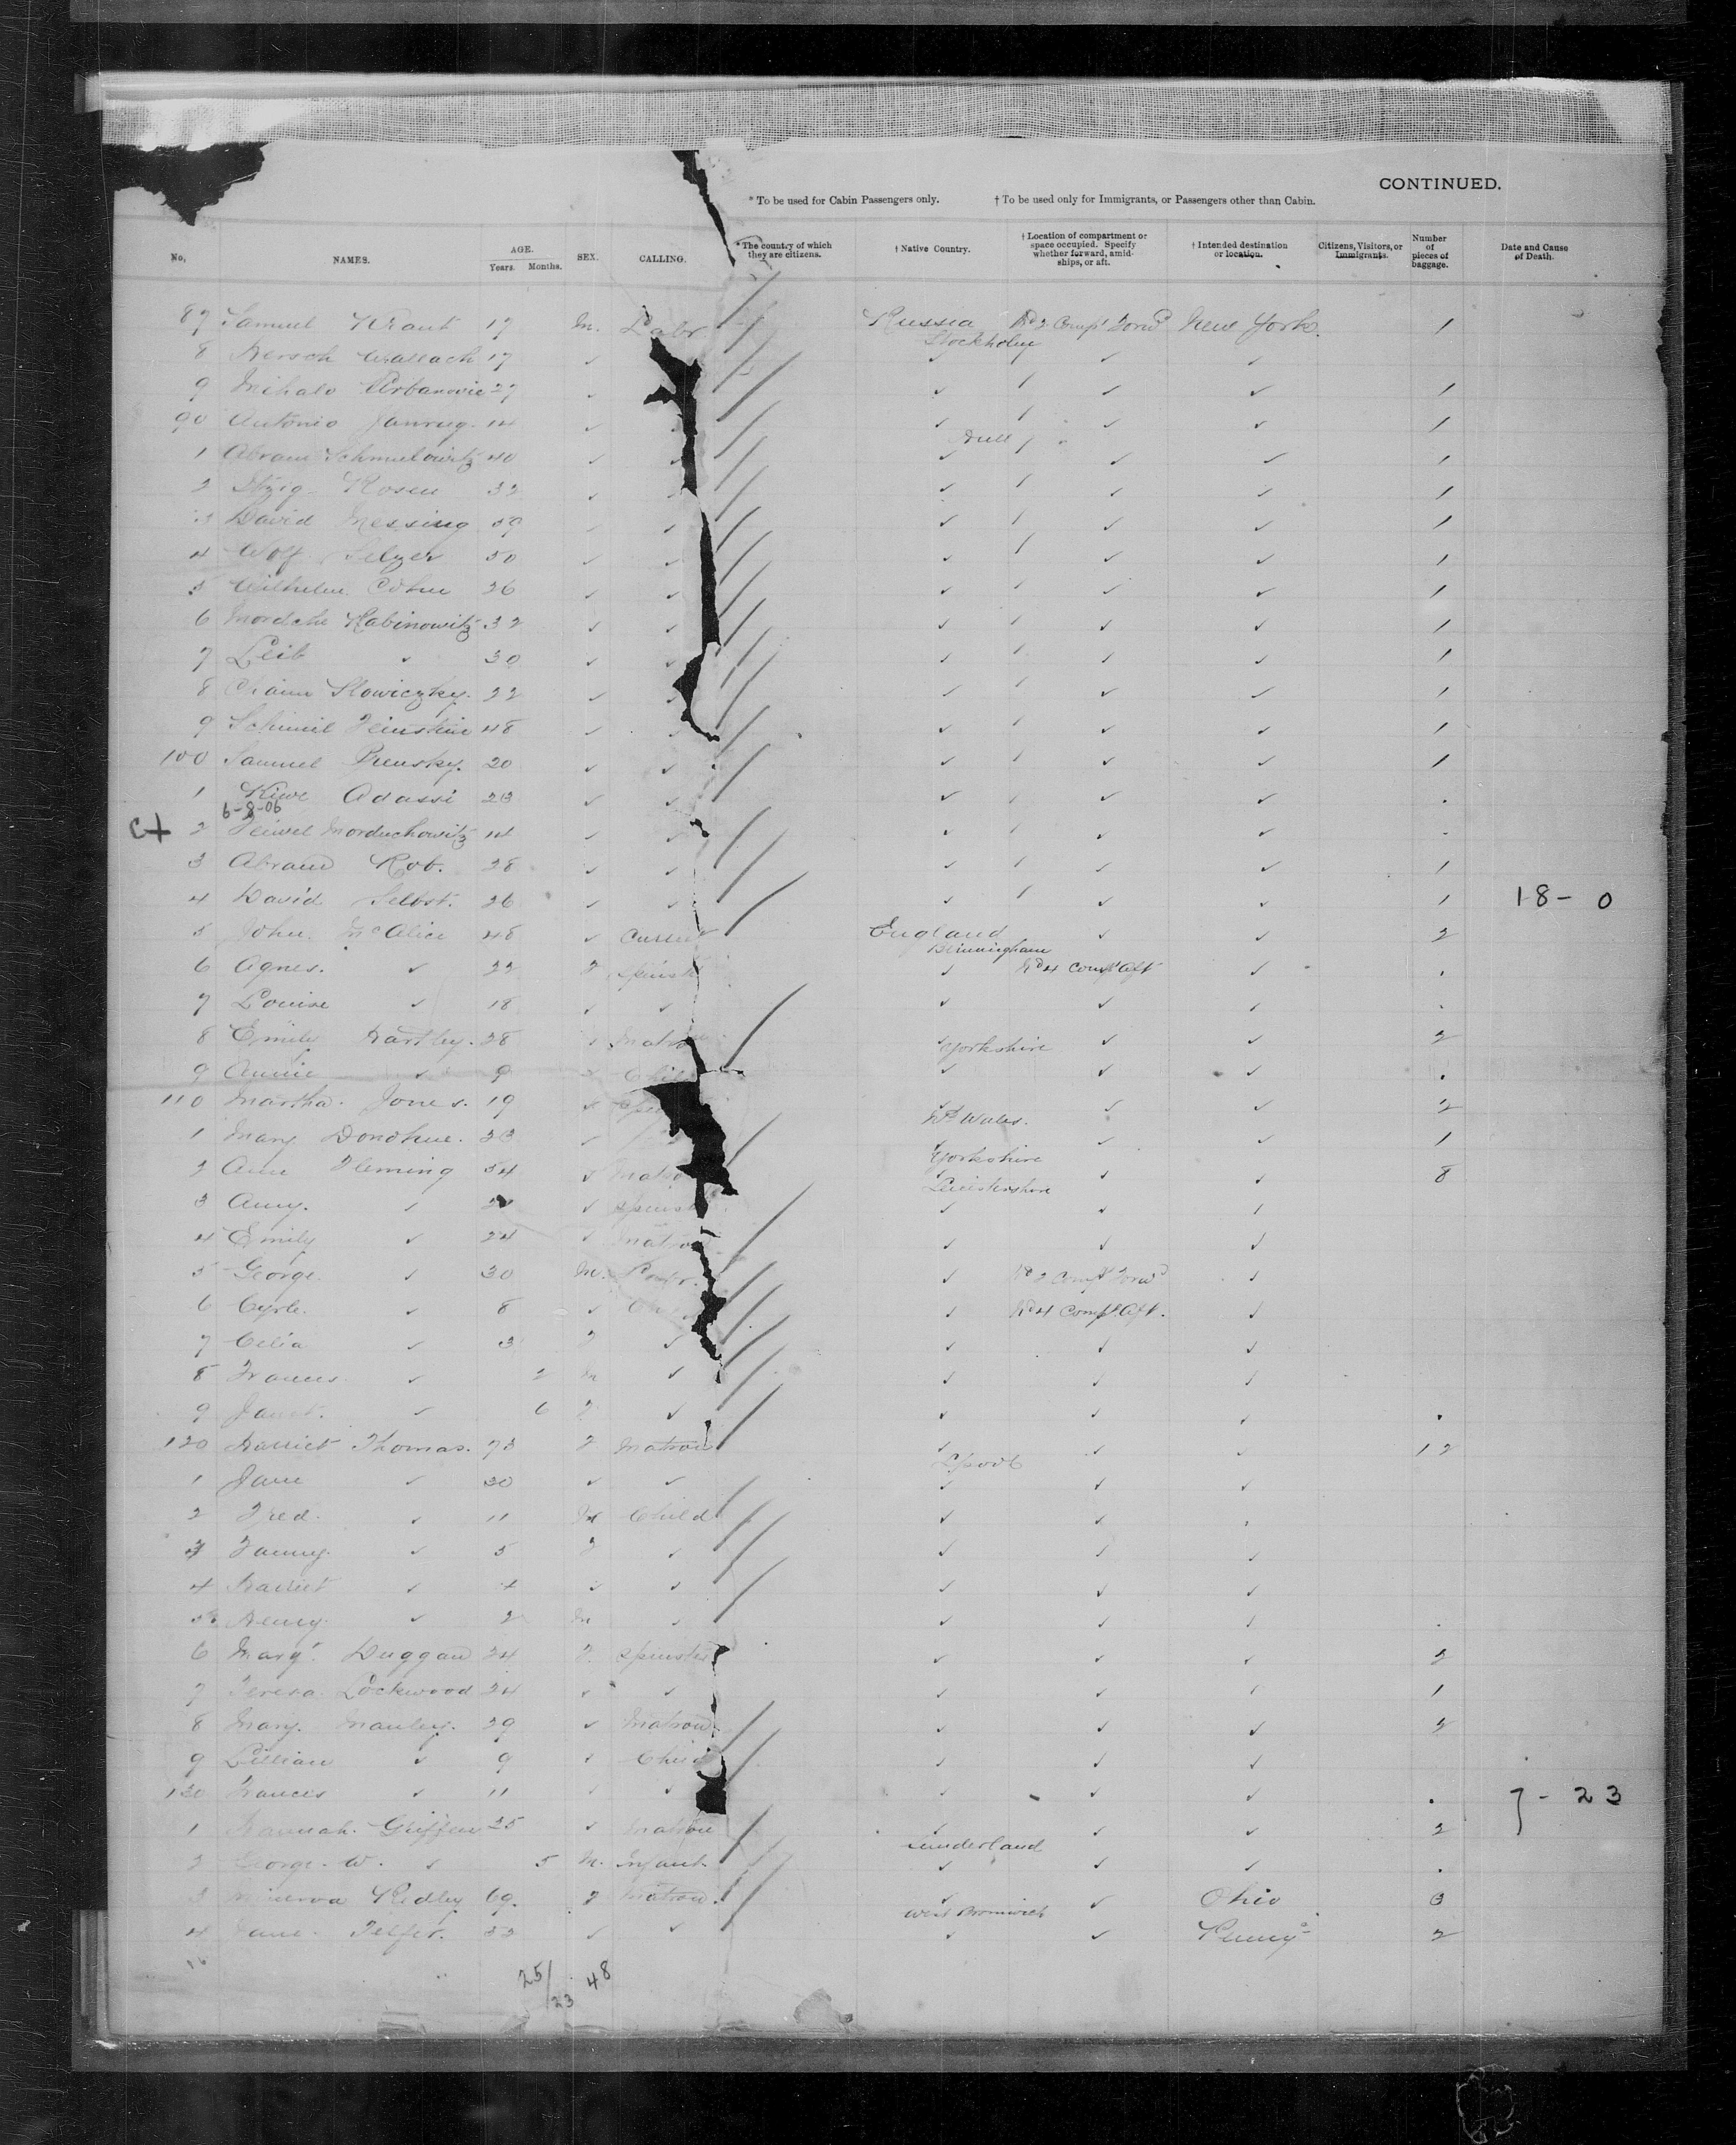 CONTINUED.
* To be used for Cabin Passengers only. † To be used only for Immigrants, or Passengers other than Cabin.
No. NAMES. AGE. Years. Months. SEX. CALLING. * The country of which they are citizens. † Native Country. † Location of compartment or space occupied. Specify whether forward, amidships, or aft. † Intended destination or location. Citizens, Visitors, or Immigrants. Number of pieces of baggage. Date and Cause of Death.
87 Samuel Kraut 17 M. Labr Russia No 2 Compt Forwd New York. 1
Stockholm
8 Hersch Wallach 17 ✓ ✓ ✓ ✓
9 Mihalo Urbanovic 27 ✓ ✓ 1 ✓ ✓ 1
90 Antonio 14 ✓ ✓ 1 ✓ ✓ 1
Hull
1 Abram Schmulowitz 40 ✓ ✓ ✓ 1 ✓ ✓ 1
2 Rosen 32 ✓ ✓ 1 ✓ ✓ 1
3 David Messing 39 ✓ ✓ ✓ 1 ✓ ✓ 1
4 Wolf Selzer 50 ✓ ✓ ✓ 1 ✓ ✓ 1
5 Wilhelm Cohn 26 ✓ ✓ ✓ 1 ✓ ✓ 1
6 Mordche Rabinowitz 32 ✓ ✓ ✓ 1 ✓ ✓ 1
7 Leib ✓ 30 ✓ ✓ ✓ 1 ✓ ✓ 1
8 Chaim Slowiczky. 22 ✓ ✓ 1 ✓ ✓ 1
9 Schimil Feinstein 48 ✓ ✓ ✓ 1 ✓ ✓ 1
100 Samuel Prensky. 20 ✓ ✓ ✓ 1 ✓ ✓ 1
1 Kiwe Adassi 23 ✓ ✓ ✓ 1 ✓ ✓ .
6-8-06
C+ 2 Feiwel Morduchowitz 14 ✓ ✓ ✓ 1 ✓ ✓ .
3 Abram Rot. 28 ✓ ✓ ✓ 1 ✓ ✓ 1
4 David Selbst. 26 ✓ ✓ ✓ 1 ✓ ✓ 1 18 - 0
5 John. McAlice 48 ✓ England ✓ ✓ 2
Birmingham
6 Agnes. ✓ 22 F Spinst ✓ No 4 Compt Aft ✓ .
7 Louise ✓ 18 ✓ ✓ ✓ ✓ ✓ .
8 Emily Hartley. 28 ✓ Matron ✓ ✓ ✓ 2
Yorkshire
9 Annie ✓ 9 ✓ Chil ✓ ✓ ✓ .
110 Martha. Jones. 19 ✓ Spi ✓ ✓ ✓ 2
Nth Wales.
1 Mary Donohue. 23 ✓ ✓ ✓ ✓ 1
Yorkshire
2 Ann Fleming 54 ✓ Matro ✓ ✓ ✓ 8
Leicestershire
3 Amy. ✓ ✓ Spinst ✓ ✓ ✓
4 Emily ✓ 24 ✓ Matron ✓ ✓ ✓
5 George. ✓ 30 M. ✓ No 2 Compt Forwd ✓
6 Cyrle. ✓ 8 ✓ Chi ✓ No 4 Compt Aft. ✓
7 Celia ✓ 3 F ✓ ✓ ✓ ✓
8 Frances ✓ 2 M ✓ ✓ ✓ ✓
9 Janet. ✓ 6 F ✓ ✓ ✓ ✓ .
120 Harriet Thomas. 73 F Matron ✓ ✓ ✓ 12
L'pool
1 Jane ✓ 30 ✓ ✓ ✓ ✓ ✓
2 Fred. ✓ 11 M Child ✓ ✓ ✓
3 Fanny. ✓ 5 F ✓ ✓ ✓ ✓
4 Harriet ✓ 4 ✓ ✓ ✓ ✓ ✓
5 Henry. ✓ 2 M ✓ ✓ ✓ ✓ .
6 Margt. Duggan 24 F. Spinster ✓ ✓ ✓ 2
7 Teresa. Lockwood 24 ✓ ✓ ✓ ✓ ✓ 1
8 Mary. Manley. 39 ✓ Matron ✓ ✓ ✓ 2
9 Lillian ✓ 9 ✓ Child ✓ ✓ ✓
130 Frances ✓ 11 ✓ ✓ ✓ ✓ ✓ . 7 - 23
1 Hannah. Griffen 25 ✓ Matron ✓ ✓ ✓ 2
Sunderland
2 George. W. ✓ 5 M. Infant. ✓ ✓ ✓ .
3 Minerva Ridley 69. F Matron. ✓ ✓ Ohio 3
West Bromwich
4 Jane. Telfer. 52 ✓ ✓ ✓ ✓ Penny a 2
25/23 48